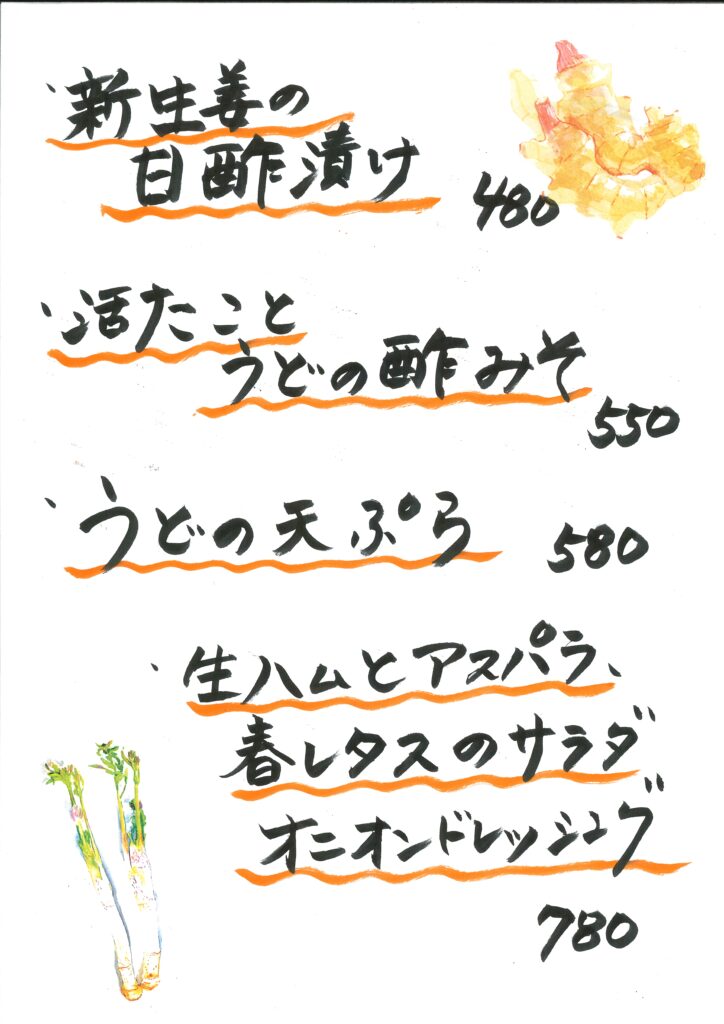 、新生姜の
甘酢漬け
480
、活たこと
うどの酢みそ
550
、うどの天ぷら
580
、生ハムとアスパラ、
春レタスのサラダ
オニオンドレッシング
780